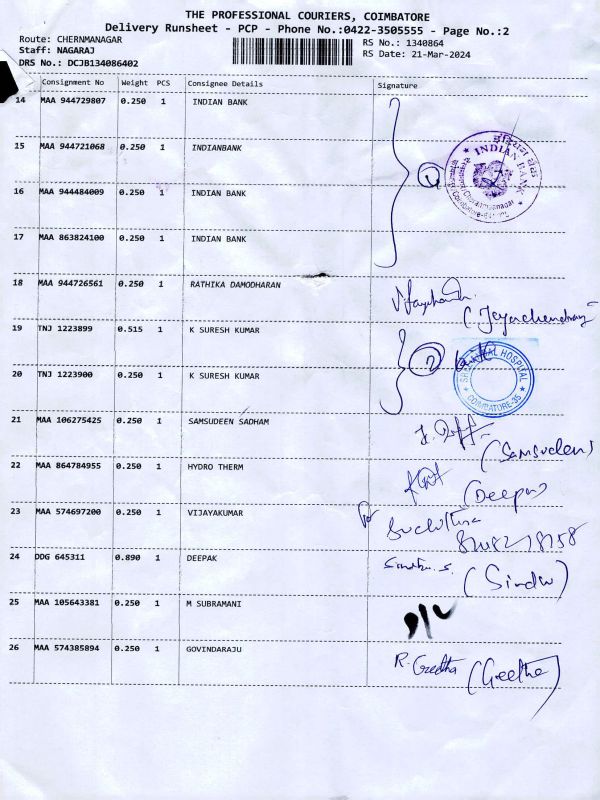 THE PROFESSIONAL COURIERS, COIMBATORE
Delivery Runsheet - PCP - Phone No.:0422-3505555 - Page No.:2
Route: CHERNMANAGAR
Staff: NAGARAJ
DRS No.: DCJB134086402
RS No.: 1340864
RS Date: 21-Mar-2024
Consignment No Weight PCS Consignee Details Signature
14 MAA 944729807 0.250 1 INDIAN BANK
15 MAA 944721068 0.250 1 INDIANBANK
INDIAN BANK
16 MAA 944484009 0.250 1 INDIAN BANK
17 MAA 863824100 0.250 1 INDIAN BANK
18 MAA 944726561 0.250 1 RATHIKA DAMODHARAN
(Jeyachandran)
19 TNJ 1223899 0.515 1 K SURESH KUMAR
HOSPITAL
20 TNJ 1223900 0.250 1 K SURESH KUMAR
COIMBATORE-35
21 MAA 106275425 0.250 1 SAMSUDEEN SADHAM
(Samsudeen)
22 MAA 864784955 0.250 1 HYDRO THERM
(Deepa)
23 MAA 574697200 0.250 1 VIJAYAKUMAR
24 DDG 645311 0.890 1 DEEPAK
Sindhu.s. (Sindu)
25 MAA 105643381 0.250 1 M SUBRAMANI
26 MAA 574385894 0.250 1 GOVINDARAJU
R. Geetha (Geetha)